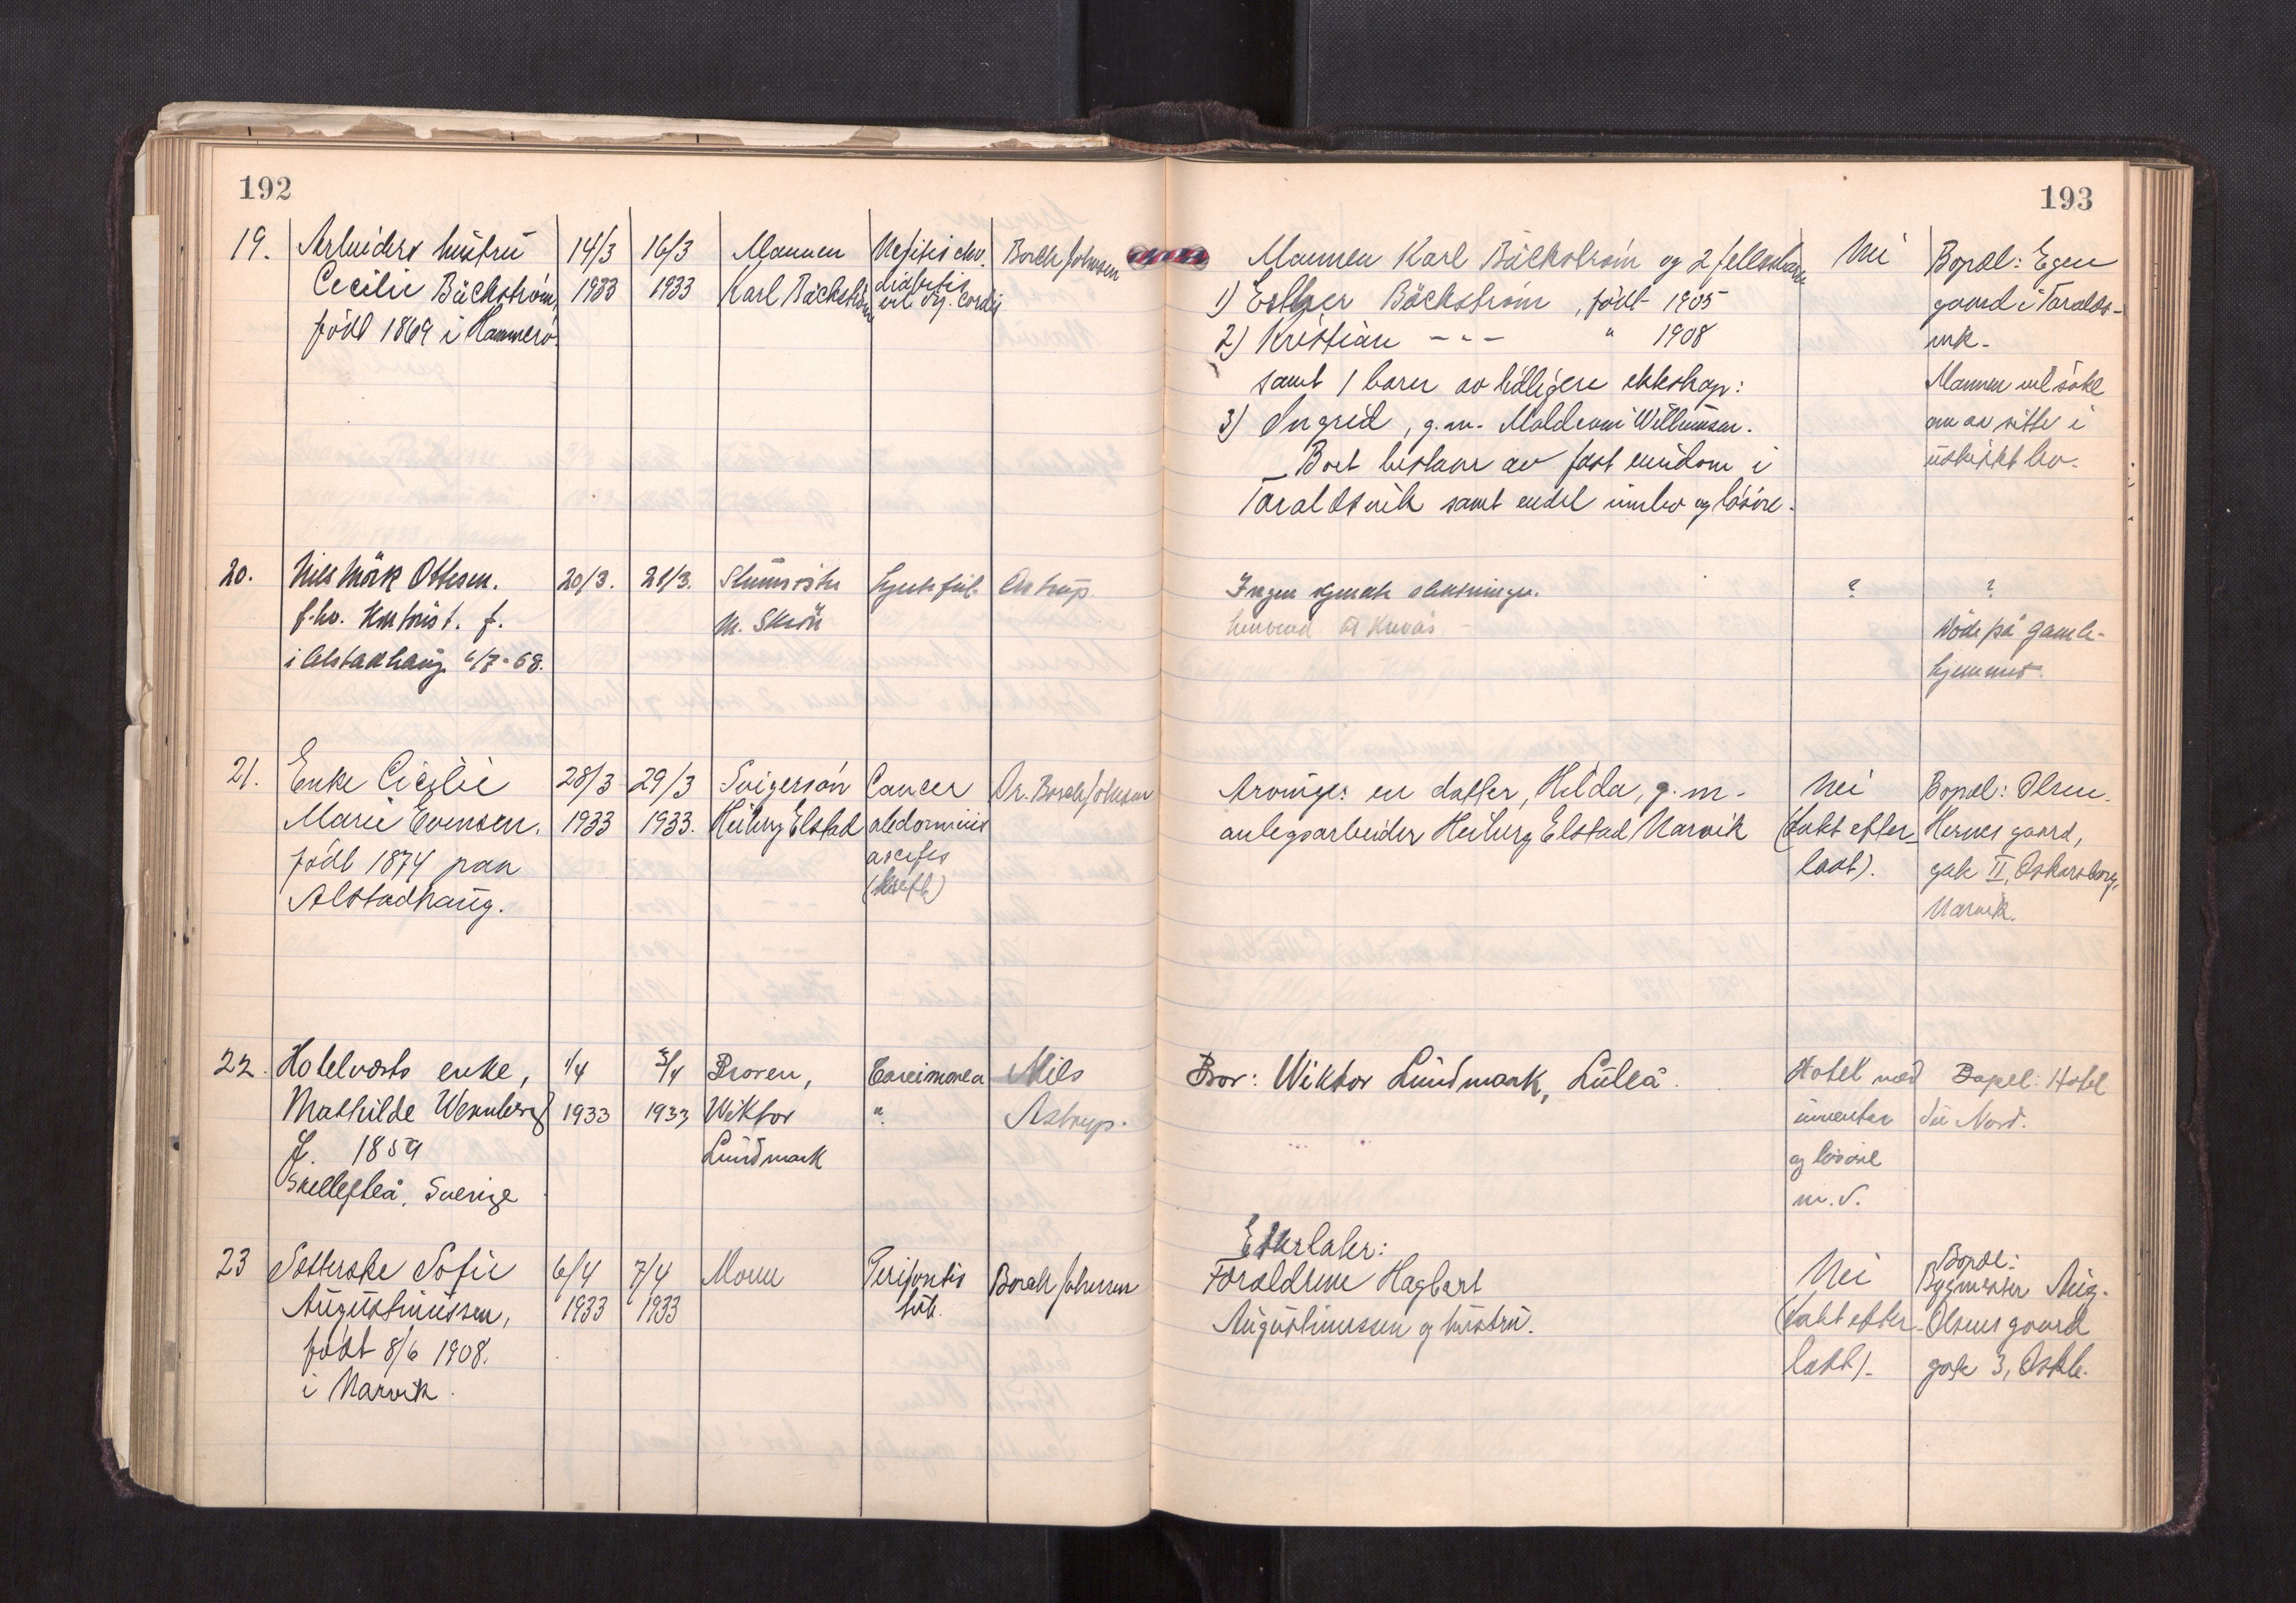 192
19. Arbeiders hustru 14/3 16/3 Mannen Nefitis chr. Borch Johnsen
Cecilie Bäckström, 1933 1933 Karl Bäckström diabetis
vit. org. cordis
født 1869 i Hammerø.
20. Nils Mörk Ottesen. 20/3. 21/3. Astrup.
f.hv. Kontorist. f. M.
i Alstadhaug 6/7-68.
21. Enke Cicilie 28/3 29/3 Svigersøn Cancer Dr. Borch Johnsen
Marie Evensen. 1933 1933. Heiberg Elstad abdominis
født 1874 paa ascites
Alstadhaug. (kreft)
22. Hotelverts enke, 1/4 3/4 Broren, Carcinoma Nils
Mathilde Wennberg 1933 1933 Wiktor " Astrup.
f. 1859 Lundmark
Skellefteå, Sverige
23 Søsterske Sofie 6/4 7/4 Moren Peritonitis Borch Johnsen
Augustinussen, 1933 1933 tub.
født 8/6 1908.
i Narvik.
193
Mannen Karl Bäckström og 2 fellesbarn Nei Bopæl: Egen
1) Esther Bäckström, født 1905 gaard i Taralds-
2) Kristian - " - " 1908 vik.
samt 1 barn av tidligere ekteskap: Mannen vil søke
3) Ingrid, g.m. Willumsen. om av sitte i
Boet bestaar av fast eiendom i uskiftet bo.
Taraldsvik samt endel innbo og løsøre.
Ingen kjente slektninger. ? ?
Døde på Gamle-
hjemmet.
Arvinger: en datter, Hilda, g.m. Nei Bopæl: Olsen
anlegsarbeider Heiberg Elstad Narvik (Intet efter- Hernes gaard,
latt). gate II, Oskarsborg,
Narvik.
Bror: Wiktor Lundmark, Luleå. Hotel med Bopel: Hotel
inventar du Nord.
og løsøre
m.v.
Etterlater:
Foreldrene Hagbart Nei Bopæl:
Bygmester Aug.
Augustinussen og hustru. (Intet efter- Olsens gaard
latt). gate 3, Oskb.